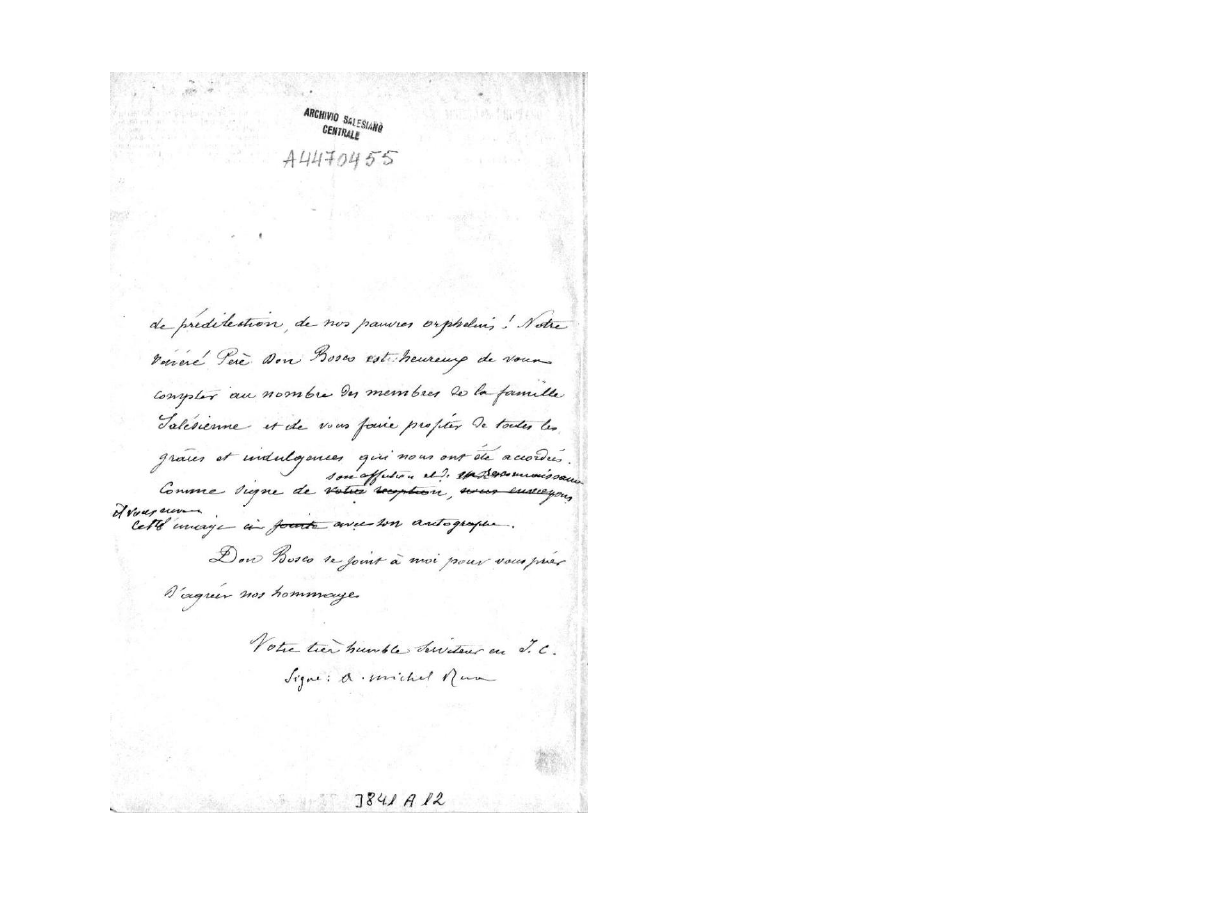 ARCHIVIO SALESIANO
CENTRALE
A4470455
de prédilection, de nos pauvres orphelins ! Notre
vénéré Père Don Bosco est heureux de vous
compter au nombre des membres de la famille
Salésienne et de vous faire profiter de toutes les
grâces et indulgences qui nous ont été accordées.
son affection et de sa reconnaissance
Comme signe de votre reception, nous envoyons
il vous envoie
cette image ci jointe avec son autographe.
Don Bosco se joint à moi pour vous prier
d'agréer nos hommages
Votre très humble Serviteur en J. C.
Signé : a. michel Rua
3841 A 12